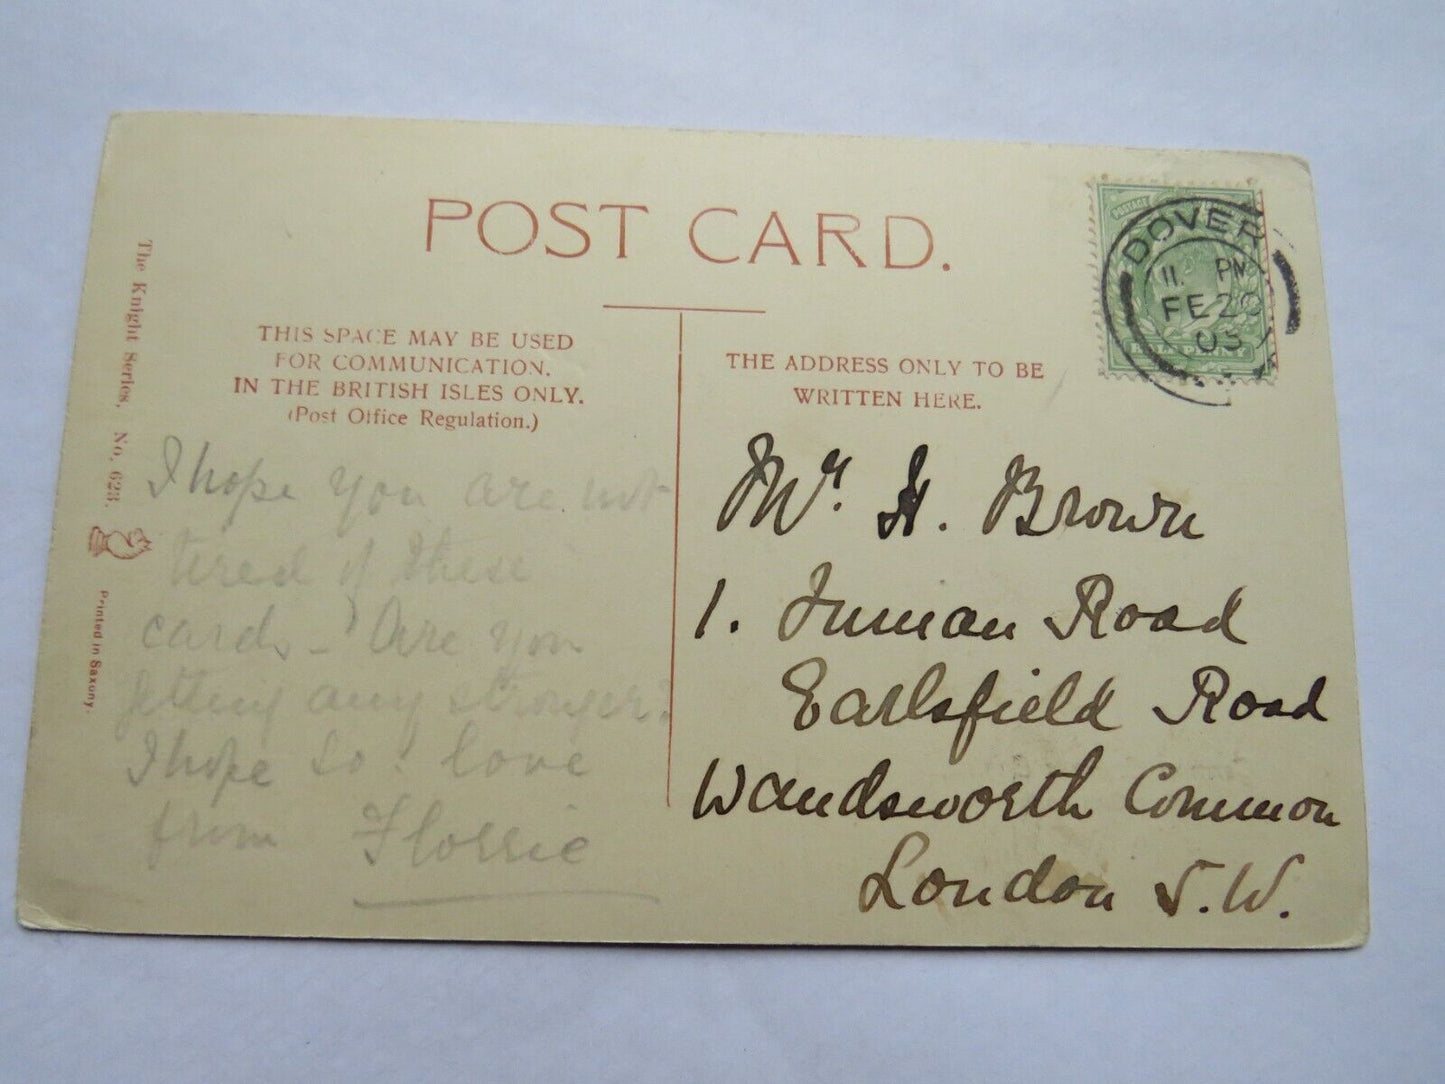 POST CARD.
THIS SPACE MAY BE USED
FOR COMMUNICATION.
IN THE BRITISH ISLES ONLY.
(Post Office Regulation.)
THE ADDRESS ONLY TO BE
WRITTEN HERE.
The Knight Series, No. 623.
Printed in Saxony.
POSTAGE
DOVER
11. PM
FE 20
PENNY
I hope you are not
tired of these
cards - Are you
getting any stronger?
I hope so! love
from Florrie
Mr. H. Brown
1. Road
Earlsfield Road
Wandsworth Common
London S.W.